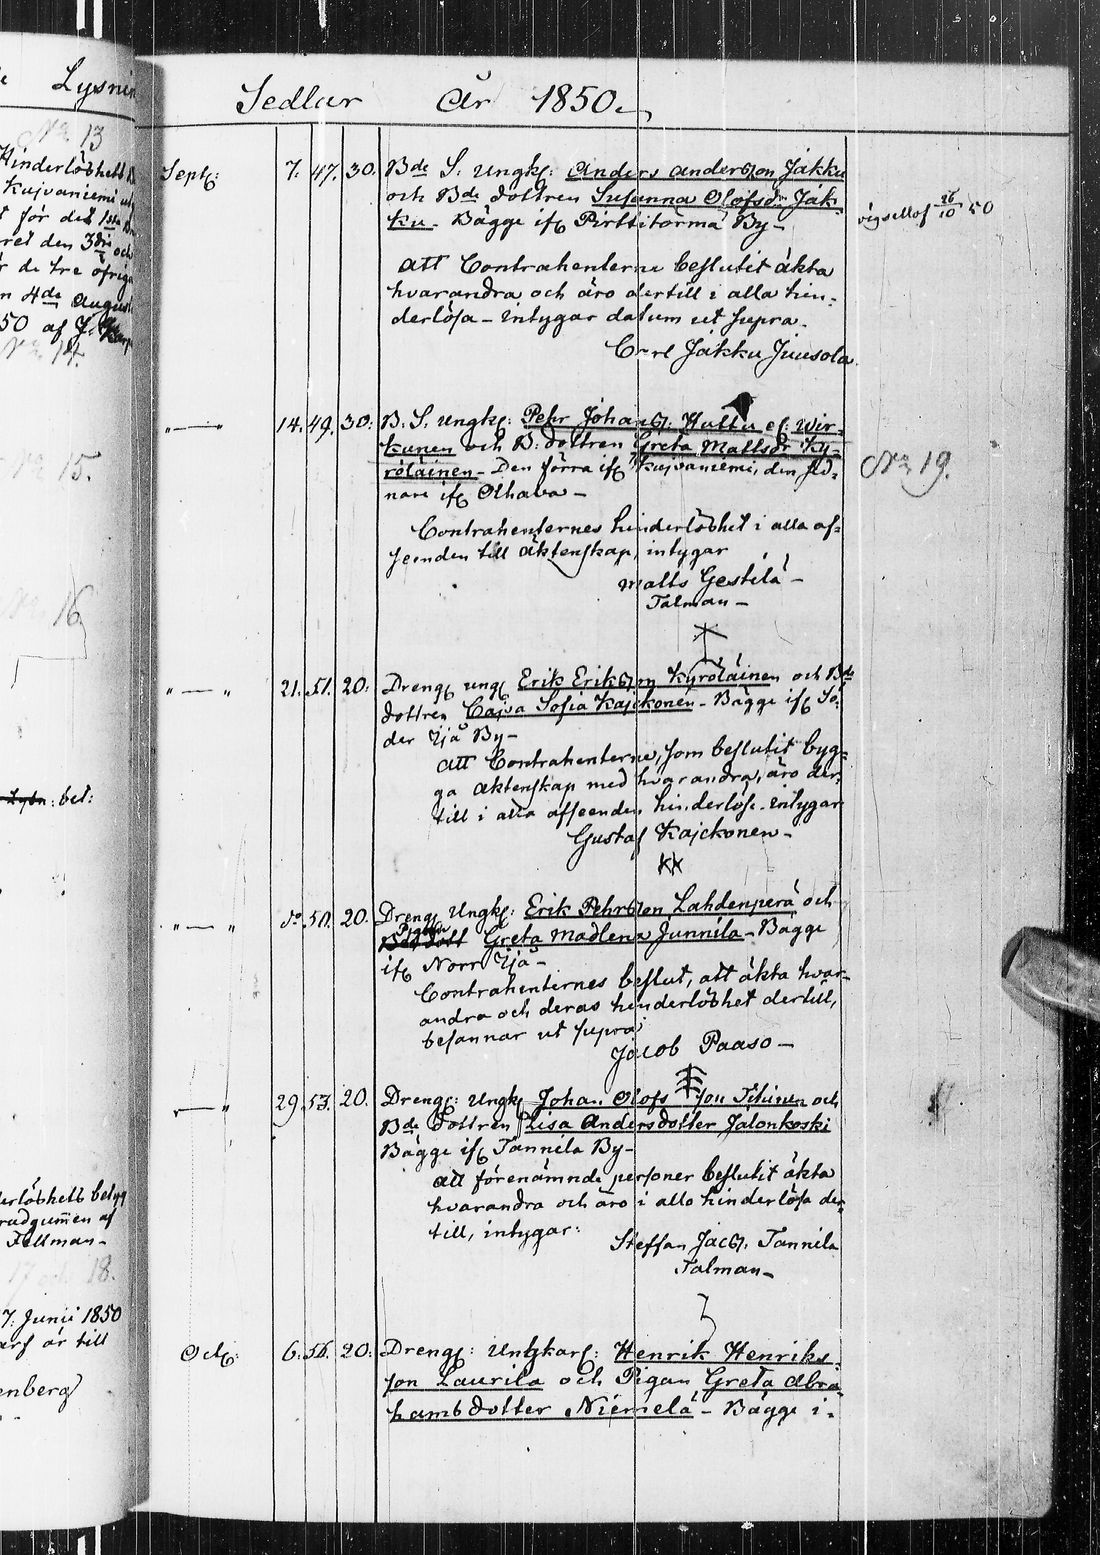 Lysnin
Nr 13
Hinderlöshets
Kujvaniemi
t för det 1sta
ret den 3die och
r de tre öfriga
n 4de Augusti
50 af J.
Nr 14.
Nr 15.
Nr 16
bet:
derlöshets betyg
rudgum̄en af
Fellman-
17 och 18.
7. Junii 1850
arf är till
enberg
Sedlar År 1850.
Septr: 7. 47. 30. Bde S. Ungk: Anders Andersson Jakku
och Bde dottren Susanna Olofsdr Jak-
ku. Bägge ifr Pirttitörmä By-
att Contrahenterne beslutit äkta
hvarandra och äro dertill i alla hin-
derlösa - intygar datum ut supra.
Carl Jakku Juusola
vigsellof 26/10 50
" — " 14. 49. 30. B. S. Ungk: Pehr Johanss: Huttu el: Wir-
kunen och B: dottren Greta Mattsdr Ky-
röläinen - Den förra ifr Kujvaniemi, den sed-
nare ifr Olhava -
Nr 19.
Contrahenternes hinderlöshet i alla af-
seenden till äktenskap, intygar
Matts Gestilä -
Talman -
" — " 21. 51. 20. Dreng. ung. Erik Eriksson Kyröläinen och Bde
dottren Cajsa Sofia Kajckonen - Bägge ifr Sö-
der Ijå By -
att Contrahenterne, som beslutit byg-
ga äktenskap med hvarandra, äro der-
till i alla afseenden hinderlöse - intygar
Gustaf Kajckonen -
" — " do 50. 20. Dreng. Ungk: Erik Pehrsson Lahdenperä och
Pigan
Greta Madlena Junnila - Bägge
ifr Norr Ijå -
Contrahenternes beslut, att äkta hvar-
andra och deras hinderlöshet dertill,
besannar ut supra
Jacob Paaso -
" — " 29 53. 20. Dreng: Ungk. Johan Olofsson Tihinen och
Bde dottren Lisa Andersdotter Jalonkoski
Bägge ifr Tannila By -
att förenämnde personer beslutit äkta
hvarandra och äro i allo hinderlösa der-
till, intygar:
Steffan Jacss. Tannila
Talman -
Octr: 6. 56. 20. Dreng: Ungkarl: Henrik Henriks-
son Laurila och Pigan Greta Abra-
hamsdotter Niemelä - Bägge i-